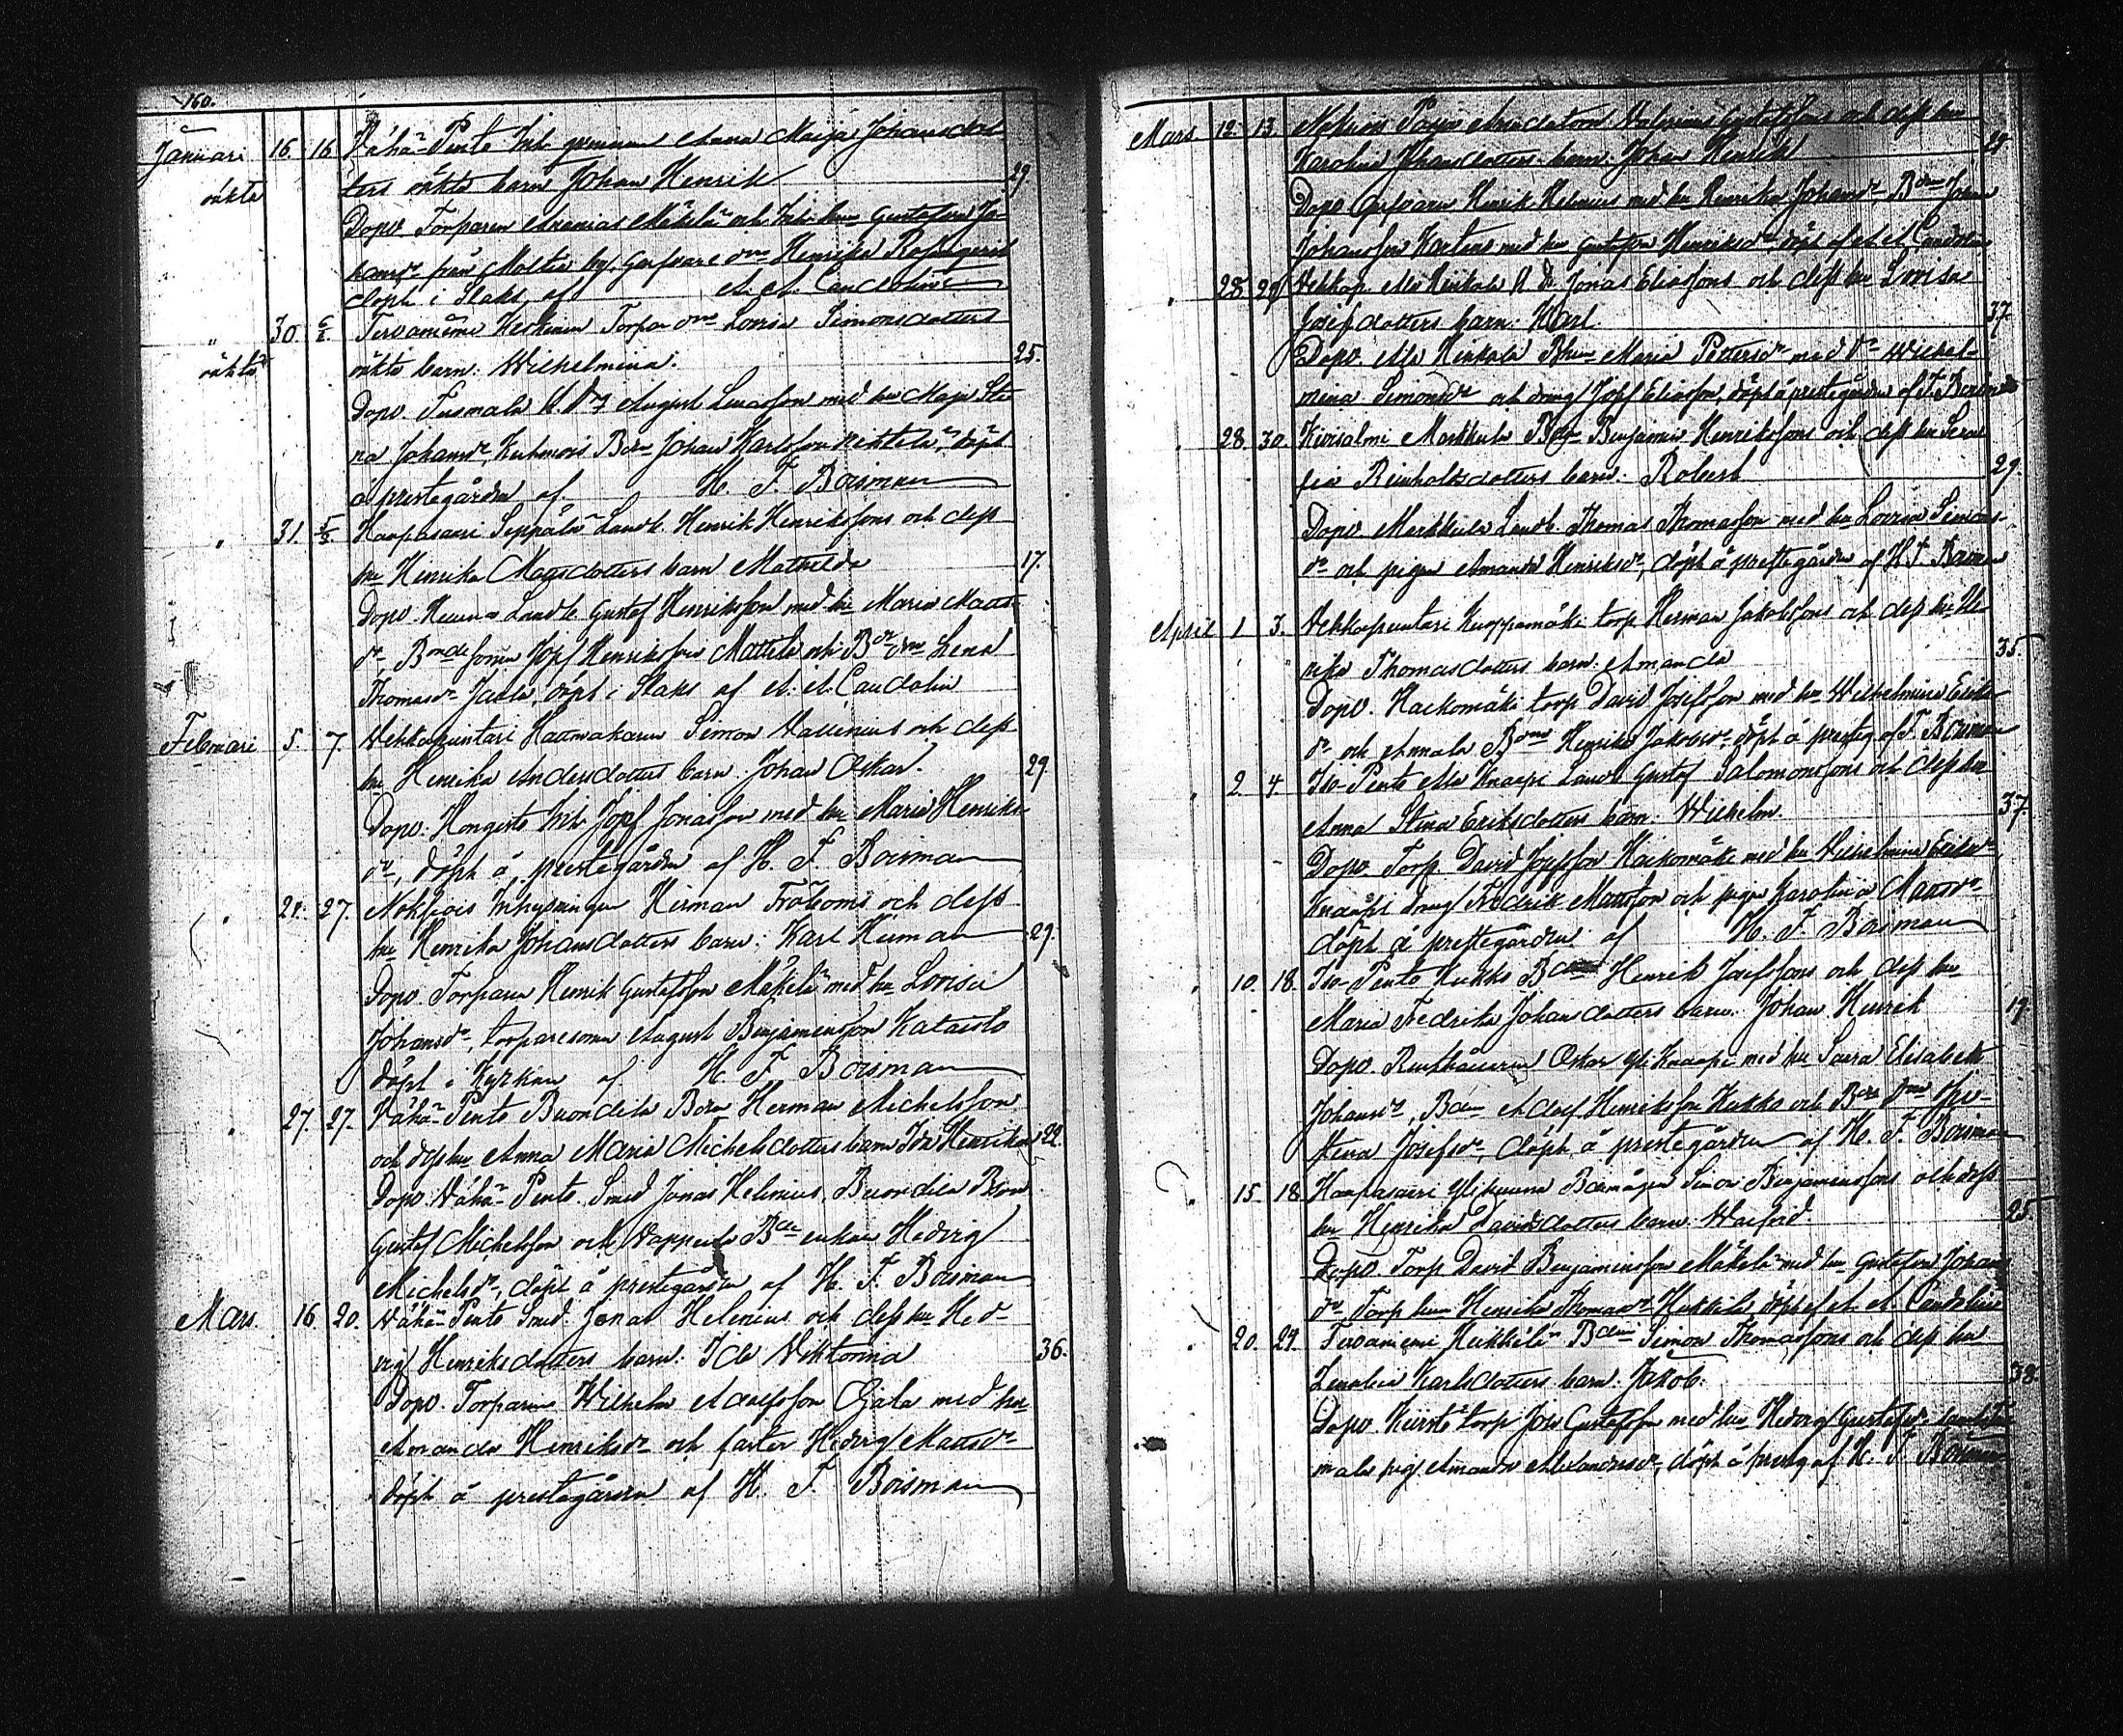 160.
Januari 16. 16. Vähä-Pento Inh. qvinnan Anna Maija Johansdot
oäkta ters oäkta barn Johan Henrik 29.
Dopv. Torparen Ananias Mäkelä och Inh. hun Gustafva Jo-
hansdr från Mälta by, Garfvare drn Henrika Rosengren
döpt i Slaks af A. A. Candolin
" 30. 6/2. Tervaniemi Heskinen Torpar drns Lovisa Simonsdotters
oäkta oäkta barn: Wilhelmina. 25.
Dopv. Tusmala August Lucasson med hu Maja Sti-
na Johansdr, Kuhmois Bdn Johan Karlsson döpt
å prestegården af H. F. Boisman
" 31. 5/2. Haapasaari Seppälä Landb. Henrik Henrikssons och dess
hu Henrika Mattsdotters barn Mathilda 17.
Dopv. Landb. Gustaf Henriksson med hu Maria Matts-
dr Bondesonen Josef Henriksson Mattila och Bdr drn Lena
Thomasdr Jaala, döpt i Slaks af A. A. Candolin
Februari 5. 7. Vekkapuntari Hattmakaren Simon Valenius och dess
hu Henrika Andersdotters barn Johan Oskar. 29.
Dopv: Hongisto Inh Josef Jonasson med hu Maria Henriks-
dr, döpt å prestegården af H. F. Boisman
" 21. 27. Nokkois Inhysingen Herman Fröboms och dess
hu Henrika Johansdotters barn: Karl Herman 29.
Dopv. Torparen Henrik Gustafsson Mäkelä med hu Lovisa
Johansdr, torparesonen August Benjaminsson Kataisto
döpt i Kyrkan af H. F. Boisman
" 27. 27. Vähä-Pento Buondila Bdn Herman Michelsson
och dess hu Anna Maria Michelsdotters barn Ida Henrika 22.
Dopv: Vähä-Pento Smed Jonas Helenius, Buondila Bdn
Gustaf Michelsson och Vappula Bde enkan Hedvig
Michelsdr, döpt å prestegården af H. F. Boisman
Mars. 16. 20. Vähä-Pento Smed. Jonas Helenius och dess hu Hed-
vig Henriksdotters barn: Ida Viktorina 36.
Dopv. Torparen Wilhelm Adolfsson Ojala med hu
Amanda Henriksdr och faster Hedvig Mattsdr
döpt å prestegården af H. F. Boisman
Mars 12. 13. Gustafssons och dess hu
Karolina Johansdotters barn: Johan Henrik
Dopv. Garfvaren Henrik Helenius med hu Henrika Johansdr Bdn Johan
Johansson med hu Gustafva Henriksdr döpt af A. A. Candolin
" 28. 29. Vekkap. Ala Kinkala Jonas Eliassons och dess hu Lovisa
Josefsdotters barn: Karl. 37.
Dopv. Ala Kinkala Maria Pettersdr med dr Wilhel-
mina Simonsdr och dräng Josef Eliasson, döpt å prestegården af F. Boisman
" 28. 30. Kivisalmi Markkula Benjamin Henrikssons och dess hu Sera-
fia Reinholdsdotters barn: Robert 29.
Dopv. Markkula Landb. Thomas Thomasson med hu Lovisa Simons-
dr och pigan Amanda Henriksdr, döpt å prestegården af H. F. Boisman
April 1. 3. Vekkapuntari Kuoppamäki torp. Herman Jakobssons och dess hu He-
nrika Thomasdotters barn: Amanda 35.
Dopv. Haekomäki torp David Josefsson med hu Wilhelmina Eriks-
dr och Annala Henrika Jakobsdr, döpt å presteg. af F. Boisman
" 2. 4. Iso-Pento Ala Knaapi Landb Gustaf Salomonssons och dess hu
Anna Stina Eriksdotters barn: Wilhelm. 37.
Dopv. Torp David Josefsson Haekomäki med hu Wilhelmina Eriksdr
Knaapi dräng Fredrik Mattsson och pigan Karolina Mattsdr
döpt å prestegården af H. F. Boisman
" 10. 18. Iso-Pento Kukko Henrik Josefssons och dess hu
Maria Fredrika Johansdotters barn: Johan Henrik 19.
Dopv. Oskar Yli Knaapi med hu Saara Elisabeth
Johansdr, Bdn Adolf Henriksson Kukko och Bde drn
Stina Josefsdr, döpt å prestegården af H. F. Boisman
" 15. 18. Haapasaari Simon Benjaminssons och dess
hu Henrika Davidsdotters barn: Walfrid. 25
Dopv. Torp David Benjaminsson Mäkelä med hu Gustafva Johans
dr Torp hun Henrika Thomasdr Heikkilä döpt af A. A. Candolin
" 20. 24. Tervaniemi Heikkilä Bdn Simon Thomassons och dess hu
Karlsdotters barn: Jakob. 38.
Dopv. torp Johan Gustafsson med hu Hedvig Gustafsdr
pig Amanda Alexandersdr, döpt å presteg af H. F. Boisman